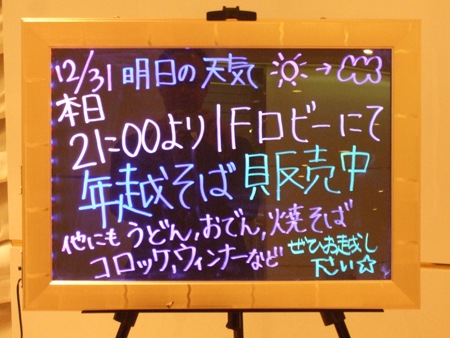 12/31 明日の天気 ☀→☁
本日
21:00より1Fロビーにて
年越そば 販売中
他にもうどん,おでん,焼そば
コロッケ,ウィンナーなど
ぜひお越し
下さい☆